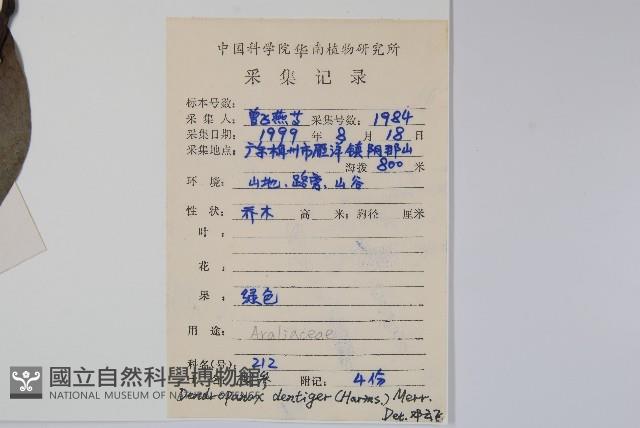 中国科学院华南植物研究所
采集记录
标本号数:
采集人: 曾飞燕等 采集号数: 1984
采集日期: 1999 年 8 月 18 日
采集地点: 广东梅州市雁洋镇阴那山
海拨 800 米
环境: 山地、路旁、山谷
性状: 乔木 高 米; 胸径 厘米
叶:
花:
果: 绿色
用途: Araliaceae
科名(号): 212
附记: 4份
國立自然科學博物館
NATIONAL MUSEUM OF NA
Dendropanax dentiger (Harms.) Merr.
Det. 邓云飞